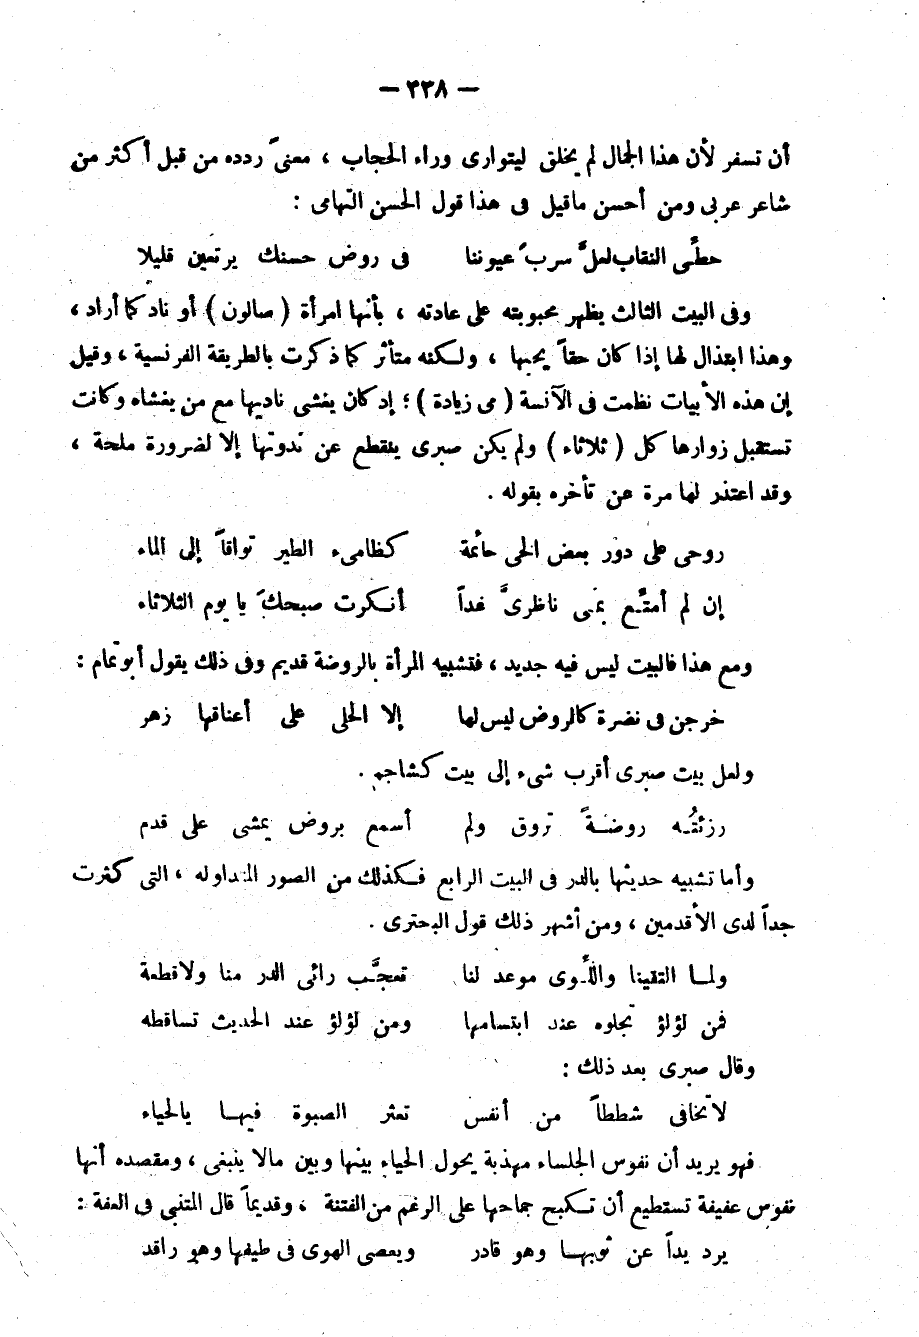 — ٣٣٨ —
أن تسفر لأن هذا الجمال لم يخلق ليتوارى وراء الحجاب ، معنىً ردده من قبل أكثر من
شاعر عربى ومن أحسن ماقيل فى هذا قول الحسن التهامى :
حطِّى النقاب لعلَّ سربَ عيوننا فى روض حسنك يرتعين قليلا
وفى البيت الثالث يظهر محبوبته على عادته ، بأنها امرأة ( صالون ) أو ناد كما أراد ،
وهذا ابتذال لها إذا كان حقاً يحبها ، ولكنه متأثر كما ذكرت بالطريقة الفرنسية ، وقيل
إن هذه الأبيات نظمت فى الآنسة ( مى زيادة ) ؛ إد كان يغشى ناديها مع من يغشاه وكانت
تستقبل زوارها كل ( ثلاثاء ) ولم يكن صبرى ينقطع عن ندوتها إلا لضرورة ملحة ،
وقد اعتذر لها مرة عن تأخره بقوله .
روحى على دور بعض الحى حائمة كظامىء الطير تواقاً إلى الماء
إن لم أمتِّع بمى ناظرىَّ غداً أنكرت صبحكَ يا يوم الثلاثاء
ومع هذا فالبيت ليس فيه جديد ، فتشبيه المرأة بالروضة قديم وفى ذلك يقول أبو تمام :
خرجن فى نضرة كالروض ليس لها إلا الحلى على أعناقها زهر
ولعل بيت صبرى أقرب شىء إلى بيت كشاجم .
رزئتُه روضةً تروق ولم أسمع بروض يمشى على قدم
وأما تشبيه حديثها بالدر فى البيت الرابع فكذلك من الصور المتداوله ، التى كثرت
جداً لدى الأقدمين ، ومن أشهر ذلك قول البحترى .
ولما التقينا واللِّوى موعد لنا تعجَّب رائى الدر منا ولاقطعة
فمن لؤلؤ تجلوه عند ابتسامها ومن لؤلؤ عند الحديث تساقطه
وقال صبرى بعد ذلك :
لا تخافى شططاً من أنفس تعثر الصبوة فيها بالحياء
فهو يريد أن نفوس الجلساء مهذبة يحول الحياء بينها وبين مالا ينبغى ، ومقصده أنها
نفوس عفيفة تستطيع أن تكبح جماحها على الرغم من الفتنة ، وقديماً قال المتنبى فى العفة :
يرد يداً عن ثوبها وهو قادر ويعصى الهوى فى طيفها وهو راقد